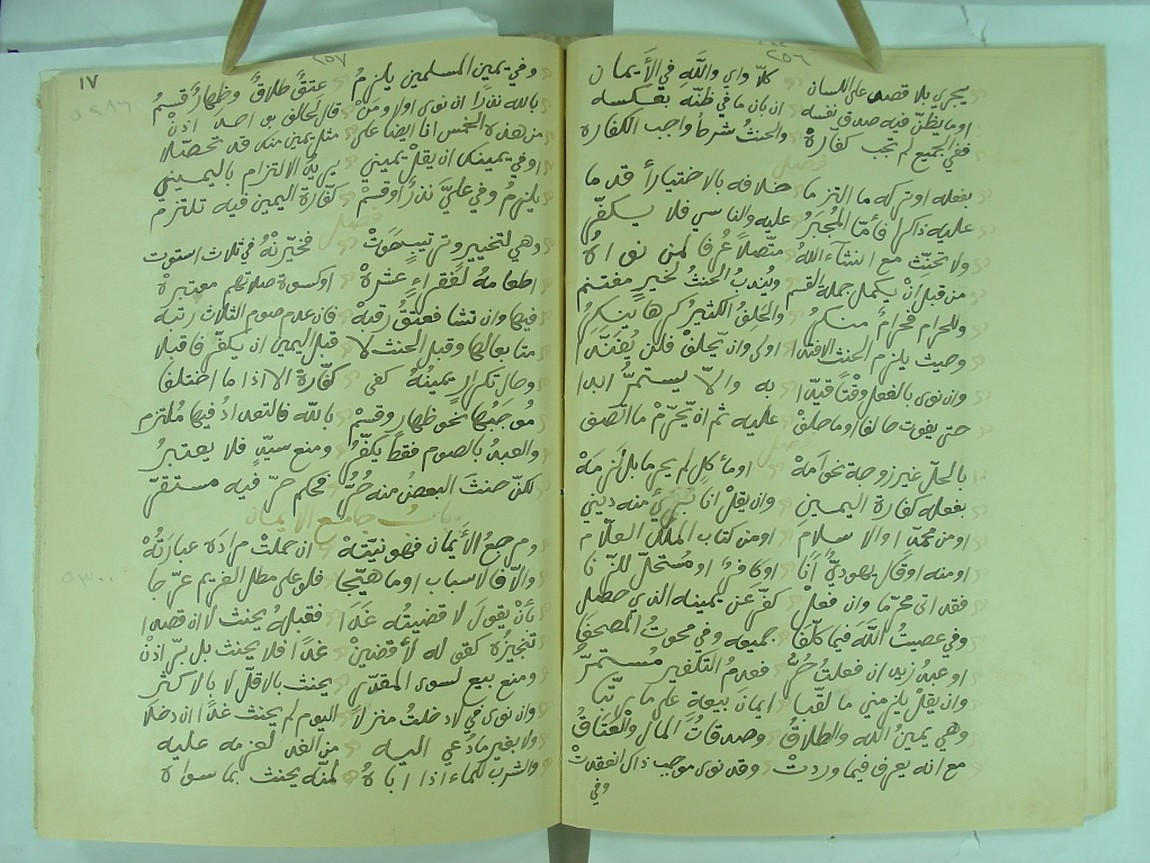 ٢٥٦
يجري بلا قصد على اللسان كلا واي والله في الأيمان
او ما يظن فيه صدق نفسه ان بان ما في ظنه بعكسه
ففي الجميع لم تجب كفارة والحنث شرط واجب الكفاره
فصل
بفعله او تركه ما التزما خلافه بالاختيار أقدما
عليه ذاكرا فأما المجبر عليه والناسي فلا يكفر
ولا تحنث مع إنشاء الله متصلا عرفا لمن نواه
من قبل ان يكمل جملة القسم ويندب الحنث لخير مغتنم
وللحرام فحرام منكر والحلف الكثير كرها ينكر
وحيث يلزم الحنث الافتدا اولى وان يحلف فلن يفندا
وان نوى بالفعل وقتا قيدا به والا يستمر ابدا
حتى يفوت حالفا او ما حلف عليه ثم ان يحرم ما اتصف
فصل
بالحل غير زوجة نحو أمه او مأكل لم يحرما بل لزمه
بفعله كفارة اليمين وان يقل انا بريء منه ديني
او من محمد او الاسلام او من كتاب الملك العلام
او منه او قال يهودي أنا او كافر او مستحل للزنا
فقد اتى محرما وان فعل كفر عن يمينه الذي حصل
وفي عصيت الله فيما كلفا جميعه وفي محوت المصحفا
او عبد زيد ان فعلت حر فعدم التكفير مستمر
وان يقل يلزمني ما لقبا ايمان بيعة على ما رتبا
وهي يمين الله والطلاق وصدقات المال والعتاق
مع انه يعرف فيما وردت وقد نوى موجب ذاك انعقدت
وفي
٢٥٧
١٧
وفي يمين المسلمين يلزم عتق طلاق وظهار قسم
بالله نذرا ان نوى اولا ومن قال لحالق بو احد اذن
من هذه الخمس انا ايضا على مثل يمين منك قد تحصلا
او في يمينك ان يقل يميني يريد الالتزام باليمين
يلزم وفي علي نذر او قسم كفارة اليمين فيه تلتزم
فصل
وهي لتخيير وترتيب حوت فخيرنه في ثلاث استوت
اطعامه لفقراء عشرة او كسوة صلاتهم معتبرة
فيها وان تشا فعتق رقبه فان عدم صوم الثلاث رتبه
متابعا لها وقبل الحنث لا قبل اليمين ان يكفر فاقبلا
وحال تكرار يمينه كفى كفارة الا اذا ما اختلفا
موجبها نحو ظهار وقسم بالله فالتعداد فيها ملتزم
والعبد بالصوم فقط يكفر ومنع سيد فلا يعتبر
لكن حنث البعض منه حر فحكم حر فيه مستقر
باب جامع الايمان
ومرجع الأيمان فهو نيته ان حملت مراده عبارته
والا فالاسباب او ما هيجا فلو على مطل الغريم عرجا
بأن يقول لا قضيته غدا فقبله يحنث لا ان قصدا
تنجيزه كقوله لأقضين غدا فلا يحنث بل بر اذن
ومنع بيع لسوى المقدر يحنث بالاقل لا بالاكثر
وان نوى في لا دخلت منزلا اليوم لم يحنث غدا ان دخلا
ولا بغير ما دعي اليه من الغدا لعزمه عليه
والشرب للماء اذا اباه لمنه يحنث بما سواه